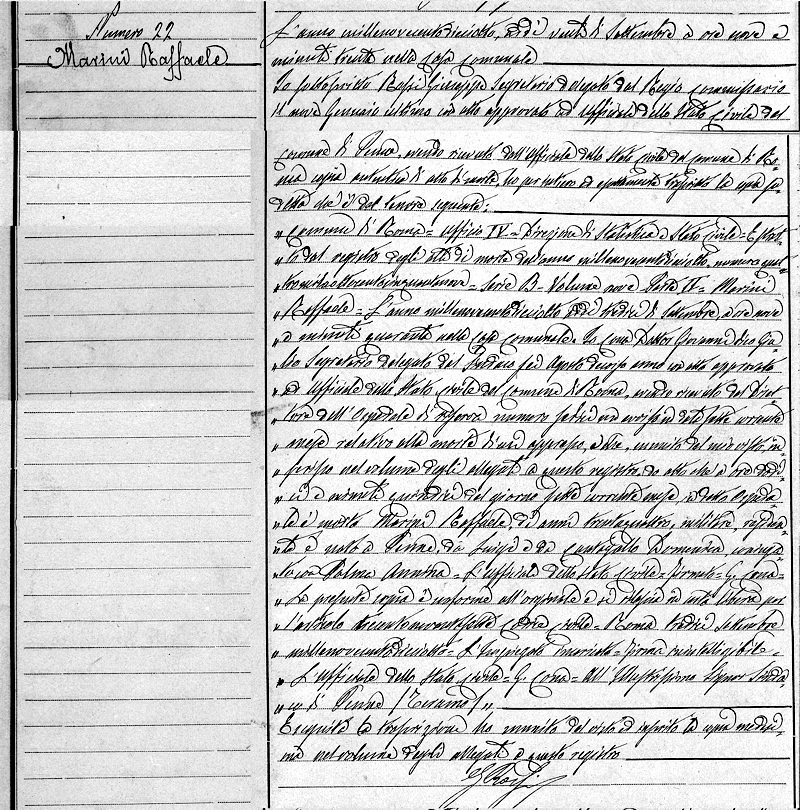 Numero 22
Marini Raffaele
L'anno millenovecentodiciotto, addì venti di Settembre a ore nove e
minuti trenta nella Casa comunale
Io sottoscritto Rossi Giuseppe Segretario delegato dal Regio Commissario
nove Gennaio ultimo con atto approvato ad Ufficiale dello Stato Civile del
Comune di Penne, avendo ricevuto dall'Ufficiale dello Stato civile del comune di Ro-
ma copia autentica di atto di morte, ho per intero ed esattamente trascritto la copia su-
detta che è del tenore seguente:
" Comune di Roma = Ufficio IV = Direzione di Statistica e Stato civile = Estrat-
" to dal registro degli atti di morte dell'anno millenovecentodiciotto, numero quat-
" tromilasettecentocinquantanove = Serie B = Volume nove Parte II = Marini
" Raffaele = L'anno millenovecentodiciotto addì tredici di Settembre, a ore nove
" e minuti quaranta nella Casa comunale. Io Cona Dottor Giovanni
" Segretario delegato del Sindaco Agosto decorso anno con atto approvato
" ad Ufficiale dello Stato civile del Comune di Roma, avendo ricevuto dal Diret-
" tore dell'Ospedale di riserva numero un avviso in data sette corrente
" mese relativo alla morte di cui appresso, e che, munito del mio visto, in-
" serisco nel volume degli allegati a questo registro, do atto che a ore dodi-
" ci e minuti quindici del giorno sette corrente mese in detto Ospeda-
" le è morto Marini Raffaele, di anni trentaquattro, militare, residen-
" te è nato a Penne, da Luigi e da Cantagallo Domenica, coniuga-
" to con Palma Annina = L'Ufficiale dello Stato Civile = Firmato = G. Cona =
" La presente copia è conforme all'originale e si rilascia in carta libera per
" l'articolo trecentonovantasette Codice civile = Roma tredici Settembre
" millenovecentodiciotto = L'Impiegato Incaricato = Firma inintelligibile =
" L'Ufficiale dello Stato civile = G. Cona = All'Illustrissimo Signor Sinda-
" co di Penne (Teramo) "
Eseguita la trascrizione ho munita del visto ed inserito la copia medesi-
ma nel volume degli allegati a questo registro
G Rossi